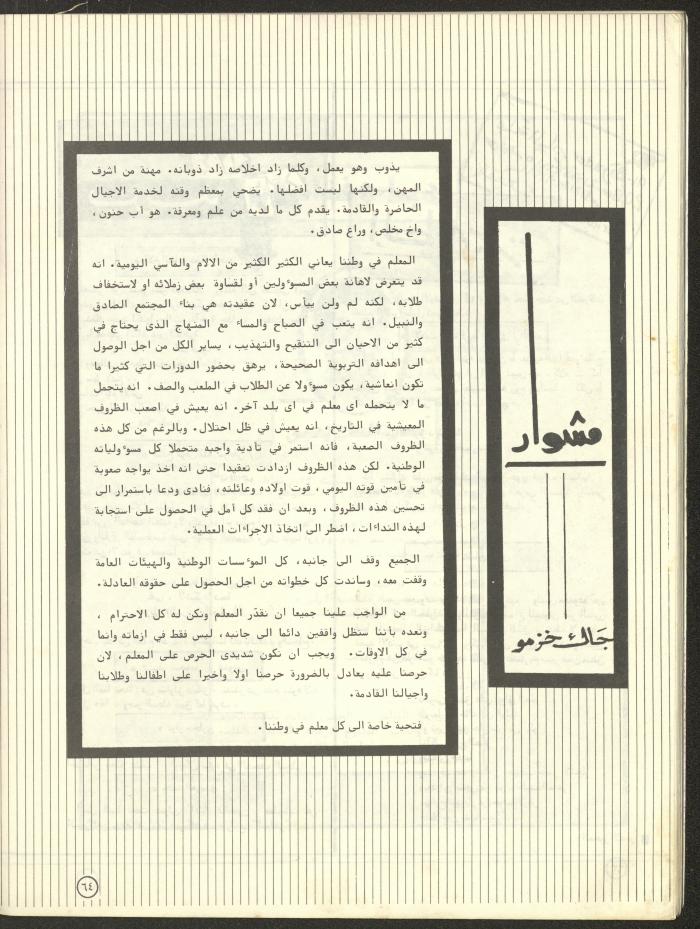 مشوار
جَاك خزمو
يذوب وهو يعمل، وكلما زاد اخلاصه زاد ذوبانه. مهنة من اشرف
المهن، ولكنها ليست افضلها. يضحي بمعظم وقته لخدمة الاجيال
الحاضرة والقادمة. يقدم كل ما لديه من علم ومعرفة. هو أب حنون،
واخ مخلص، وراع صادق.
المعلم في وطننا يعاني الكثير الكثير من الالام والمآسي اليومية. انه
قد يتعرض لاهانة بعض المسوءولين أو لقساوة بعض زملائه او لاستخفاف
طلابه، لكنه لم ولن ييأس، لان عقيدته هي بناء المجتمع الصادق
والنبيل. انه يتعب في الصباح والمساء مع المنهاج الذى يحتاج في
كثير من الاحيان الى التنقيح والتهذيب، يساير الكل من اجل الوصول
الى اهدافه التربوية الصحيحة، يرهق بحضور الدورات التي كثيرا ما
تكون انعاشية، يكون مسوءولا عن الطلاب في الملعب والصف. انه يتحمل
ما لا يتحمله اى معلم في اى بلد آخر. انه يعيش في اصعب الظروف
المعيشية في التاريخ، انه يعيش في ظل احتلال. وبالرغم من كل هذه
الظروف الصعبة، فانه استمر في تأدية واجبه متحملا كل مسوءولياته
الوطنية. لكن هذه الظروف ازدادت تعقيدا حتى انه اخذ يواجه صعوبة
في تأمين قوته اليومي، قوت اولاده وعائلته، فنادى ودعا باستمرار الى
تحسين هذه الظروف، وبعد ان فقد كل أمل في الحصول على استجابة
لهذه النداءات، اضطر الى اتخاذ الاجراءات العملية.
الجميع وقف الى جانبه، كل الموءسسات الوطنية والهيئات العامة
وقفت معه، وساندت كل خطواته من اجل الحصول على حقوقه العادلة.
من الواجب علينا جميعا ان نقدّر المعلم ونكن له كل الاحترام ،
ونعده بأننا سنظل واقفين دائما الى جانبه، ليس فقط في ازماته وانما
في كل الاوقات. ويجب ان نكون شديدى الحرص على المعلم، لان
حرصنا عليه يعادل بالضرورة حرصنا اولا واخيرا على اطفالنا وطلابنا
واجيالنا القادمة.
فتحية خاصة الى كل معلم في وطننا.
٦٤